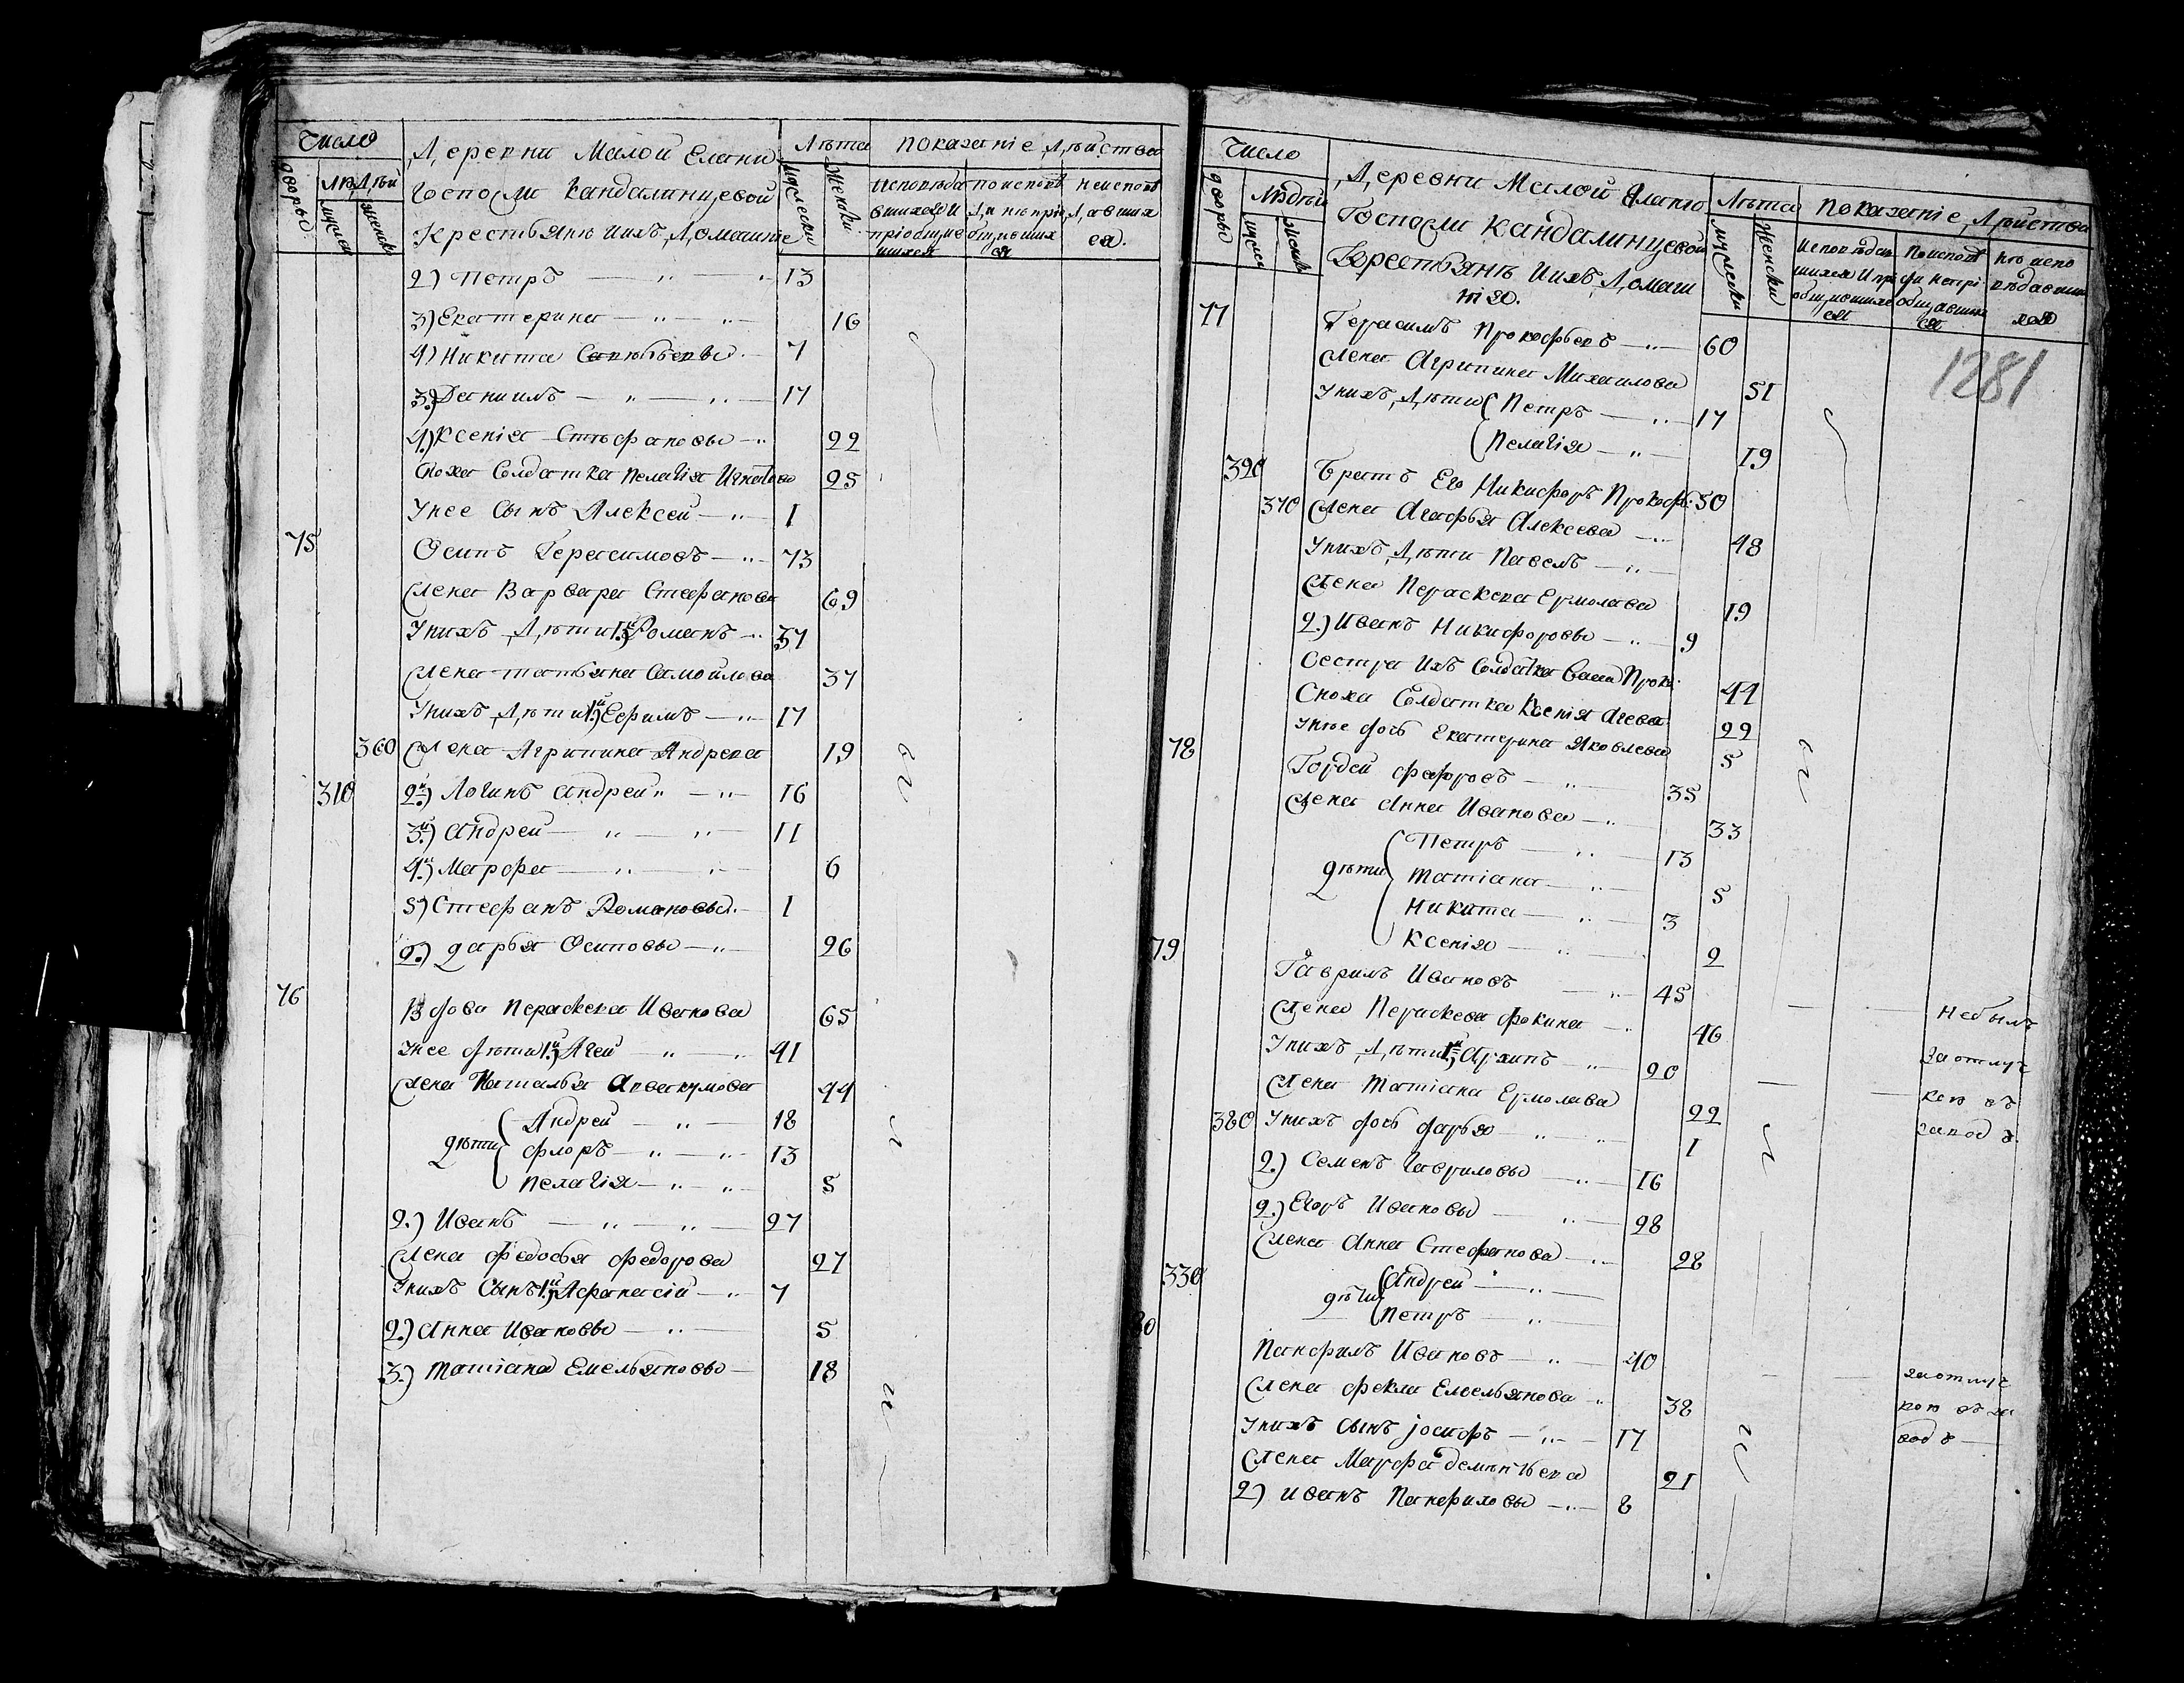 Число
Деревни Малой Елани
Лѣта
показаніе дѣйства
дворы
Людѣй
мужеск
женск
Госпожи Кандалинцевой
Крестьяне ихъ домашнїе
мужески
женски
исповѣда
вшихся и
пріобщив
шихся
по исповѣ
ди непріо
общивших
ся
неисповѣ
давших
ся.
2) Петръ — „ 13
3) Екатерина — „ — „ — 16
4) Никита Савельевы — 7
3) Данїилъ — „ — „ — 17
4) Ксенія Стефановы — „ 22
Сноха Солдатка Пелагія Игнатова 25
У нее Сынъ Алексей — „ — 1
75 Осипъ Герасимовъ — „ — 73
Жена Варвара Стефанова 69
У нихъ дѣти 1й) Романъ — „ 37
Жена татьяна Самойлова 37
У нихъ дѣти 1й) Ефимъ — „ — 17
360 Жена Агрипина Андреева 19
310 2й) Логинъ Андреи „ — „ — 16
3й) Андрей — „ — „ — 11
4й) Марфа — „ — „ — 6
5) Стефанъ Романовы — 1
2) Дарья Осиповы — „ — 26
76 Вдова Параскева Иванова 65
У нее дѣти 1й) Агей — „ — „ 41
Жена Наталья Аввакумова 44
Дѣти
Андрей — „ — 18
Флоръ — „ — „ — 13
Пелагія — „ — „ — 5
2) Иванъ — „ — „ — 27
Жена Федосья Федорова 27
У нихъ Сынъ 1й) Афанасій — „ 7
2) Анна Ивановы — „ — 5
3) Татіана Емельяновы — 18
Число
Деревни Малой Елани
Лѣта
Показаніе дѣйства
дворы
Людѣй
мужес
женск
Госпожи Кандалинцевой
Крестьянъ ихъ домаш
нія.
мужески
женски
Исповѣдав
шихся и прі
общившихся
По исповѣ
ди непрі
общавших
ся
не испо
вѣдавших
ся
1281
77 Герасимъ Прокофьевъ — „ — 60
Жена Агрипина Михаилова 51
У нихъ дѣти Петръ — „ — 17
Пелагія — „ — 19
320 Братъ Его Никифоръ Прокоф: 50
370 Жена Агафья Алексеева — „ 48
У нихъ дѣти Павелъ — „ —
Жена Параскева Ермолаева 19
2) Иванъ Никифоровы — „ — 9
Сестра ихъ Солдатка Прок: 44
Сноха Солдатка Ксенія Агеева 22
У нее дочь Екатерина Яковлева 5
78 Гордей Федоровъ — „ — 35
Жена Анна Иванова — „ 33
Дѣти
Петръ — „ — 13
Татіана — „ — 5
Никита — „ — 3
Ксенія — „ — 2
79 Гаврилъ Ивановъ — „ — 45
Небылъ
Жена Параскева Фокина — „ 46
У нихъ дѣти 1й) Архипъ — „ — 20
За отлуч
Жена Татіана Ермолаева 22
кою въ
380 У нихъ дочь Дарья „ „ 1
заводъ
2) Семенъ Гавриловы — „ — 16
2) Егоръ Ивановы — „ — 28
Жена Анна Стефанова — „ 28
330 Дѣти
Андрей — „ —
Петръ — „ —
80 Панфилъ Ивановъ — „ — 40
за отлуч
Жена Фекла Емельянова „ 38
кою въ за
У нихъ сынъ Іосифъ — „ — 17
водъ —
Жена Марфа Дементьева 21
2) Иванъ Панфиловы — „ — 8